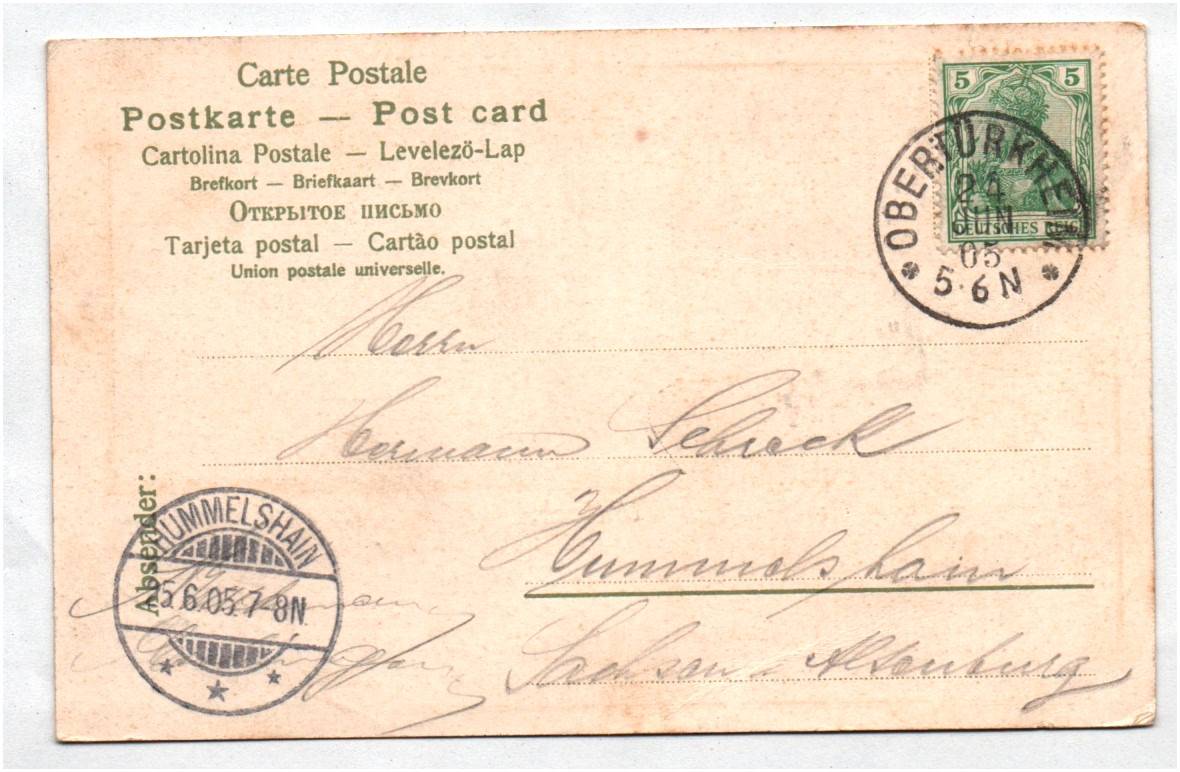 Carte Postale
Postkarte — Post card
Cartolina Postale — Levelezö-Lap
Brefkort — Briefkaart — Brevkort
Открытое письмо
Tarjeta postal — Cartào postal
Union postale universelle.
5 5
DEUTSCHES REICH
OBERTÜRKHEIM
24
JUN
05
5-6N
Herrn
Hermann Scheck
Hummelshain
Sachsen-Altenburg
Absender:
HUMMELSHAIN
5.6.05.7-8N.